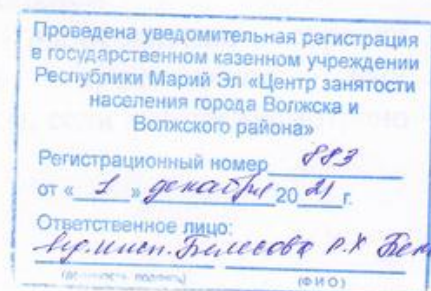 Проведена уведомительная регистрация
в государственном казенном учреждении
Республики Марий Эл «Центр занятости
населения города Волжска и
Волжского района»
Регистрационный номер 883
от « 1 » декабря 20 21 г.
Ответственное лицо:
вед.инсп. Белесова Р.Х
(должность подпись) (ФИО)